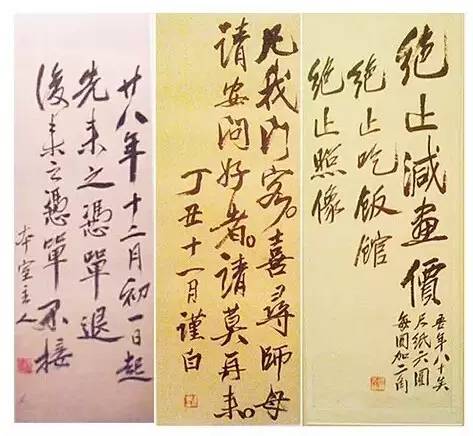 絕止減畫價
絕止吃飯館
絕止照像
吾年八十矣
尺紙六圓
每圓加二角
凡我門客。喜尋師母
請安問好者。請莫再來。
丁丑十一月謹白
廿八年十二月初一日起
先來之憑單退
後來之憑單不接
本室主人